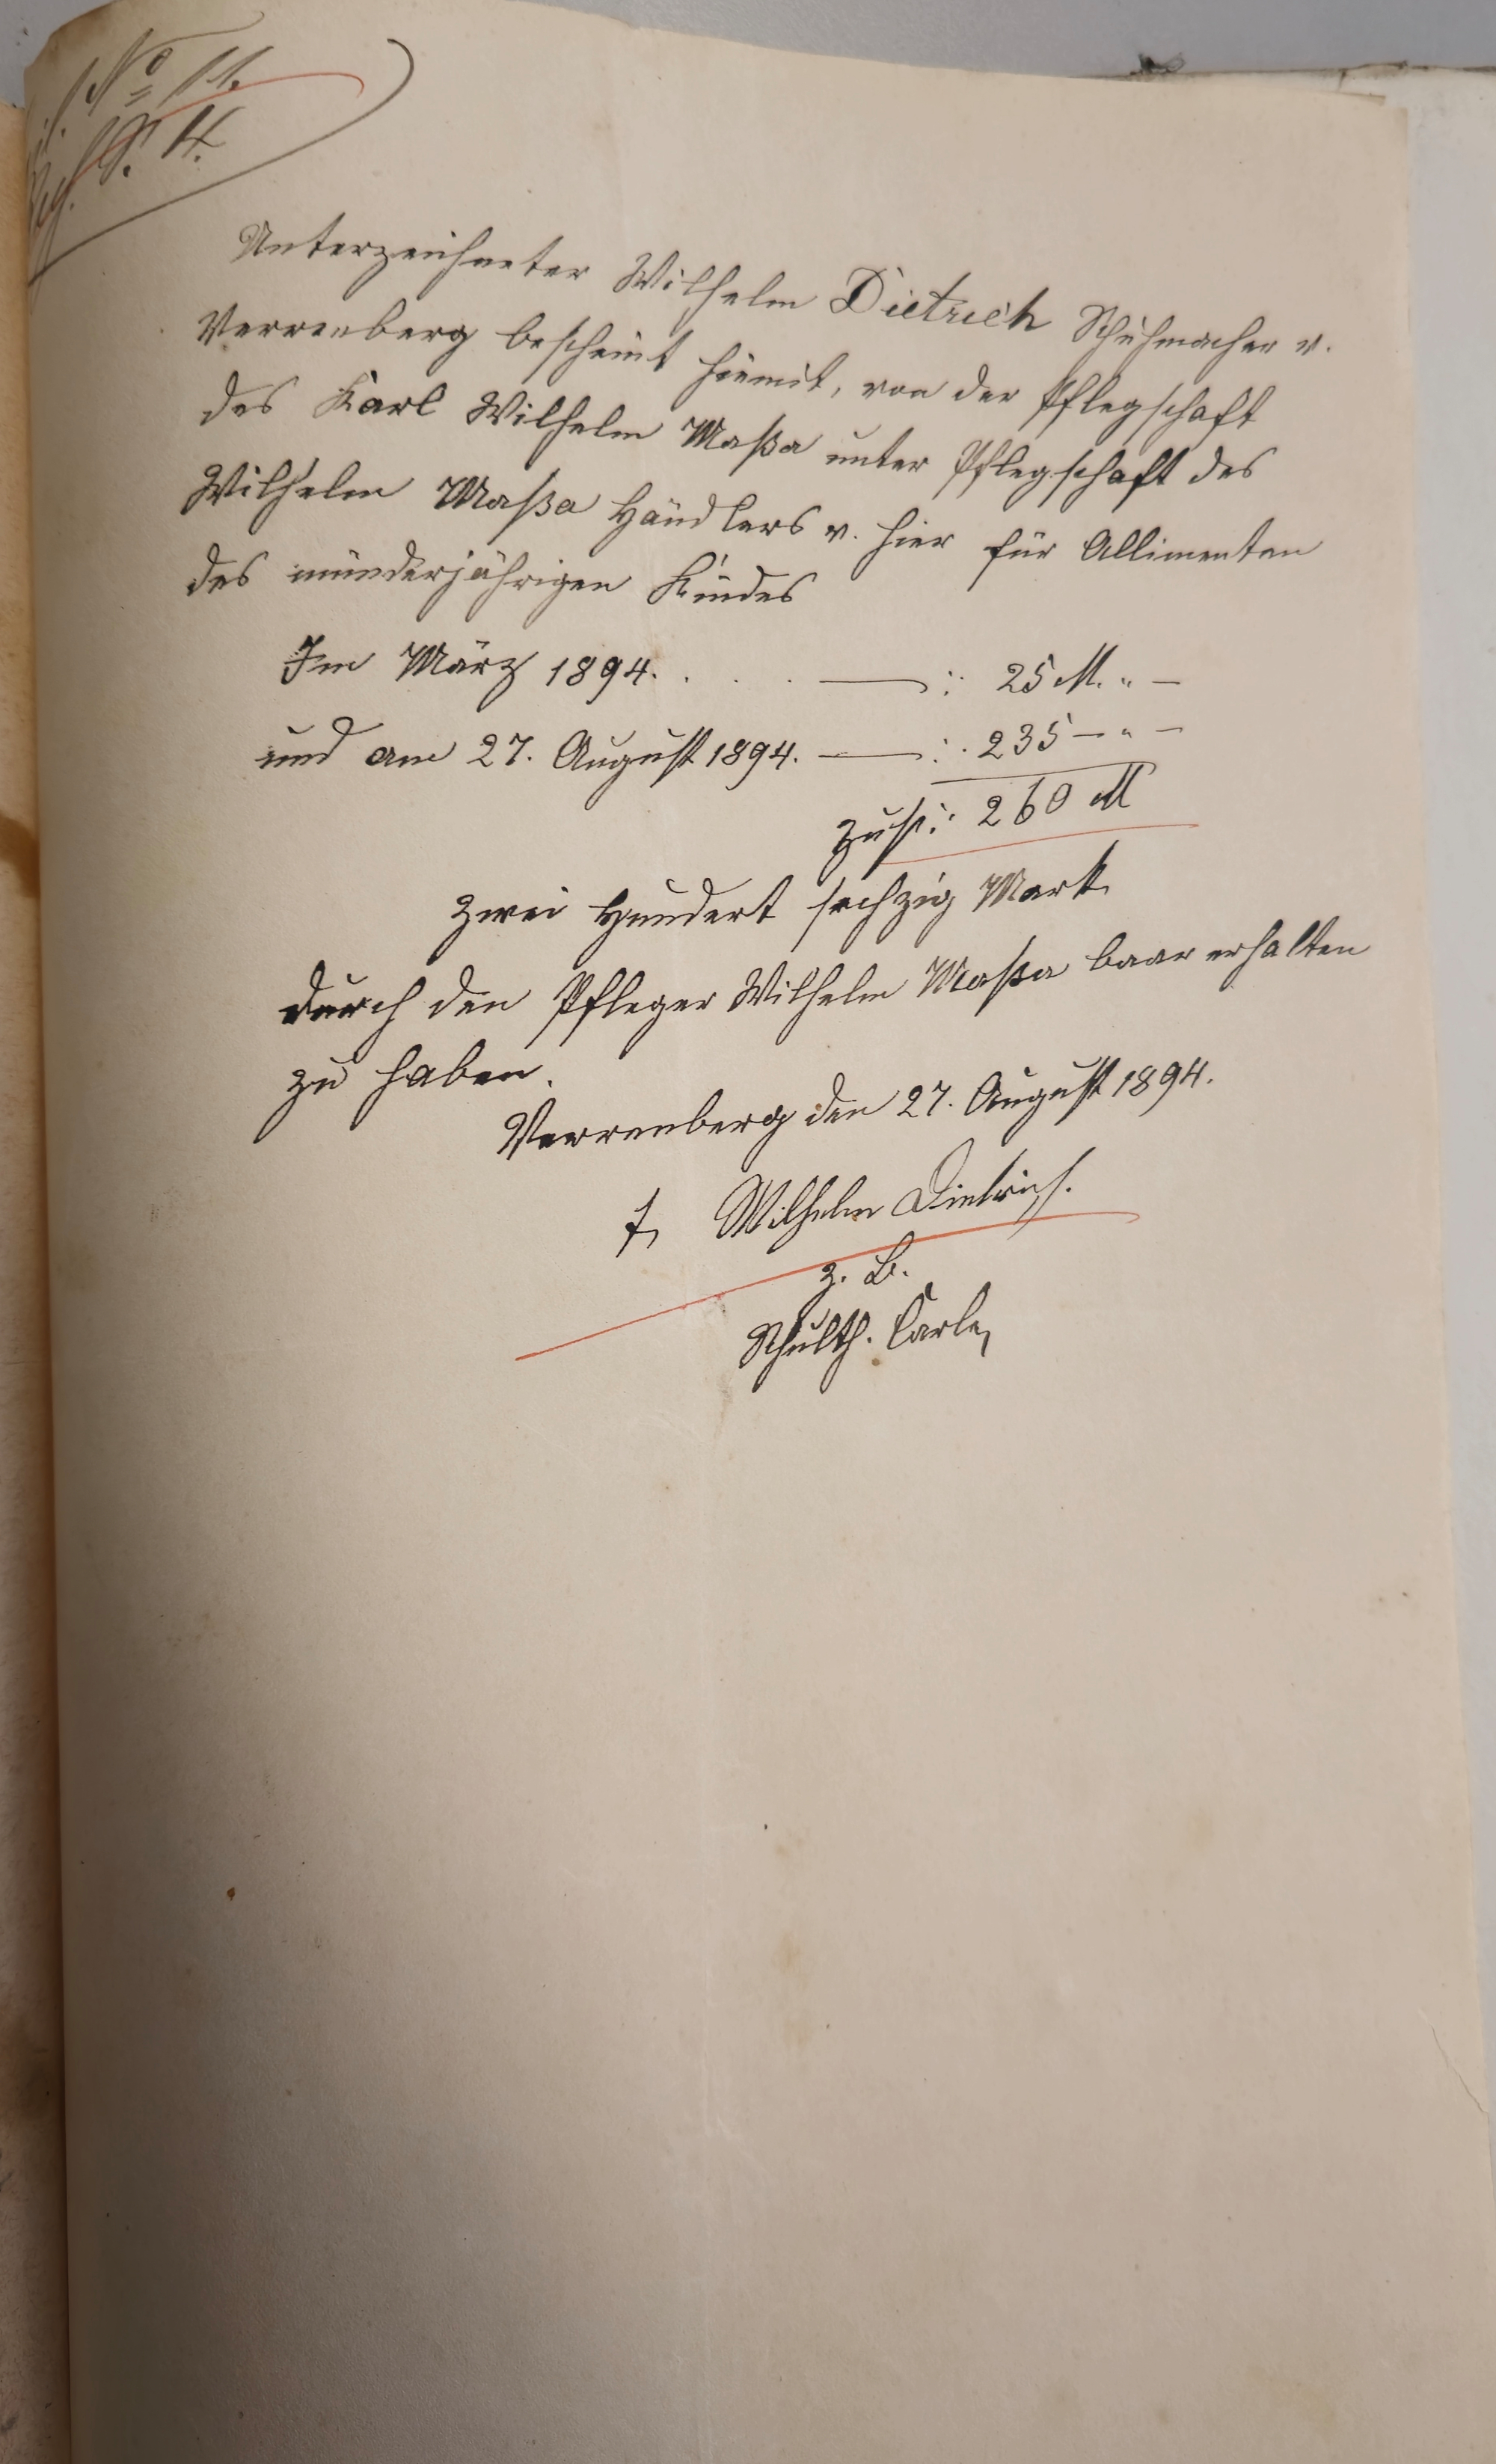 No 11.
S. 4.
Unterzeichneter Wilhelm Dietrich Schuhmacher v.
Verrenberg bescheint hiemit, von der Pflegschaft
des Karl Wilhelm Maßa unter Pflegschaft des
Wilhelm Maßa Händlers v. hier für Allimenten
des minderjährigen Kindes
Im März 1894. . . . — : 25 M. " —
und am 27. August 1894. — : 235 — " —
zus: 260 M
Zwei Hundert sechzig Mark
durch den Pfleger Wilhelm Maßa baar erhalten
zu haben.
Verrenberg den 27. August 1894.
Wilhelm Dietrich.
z. B.
Schulth. Carle